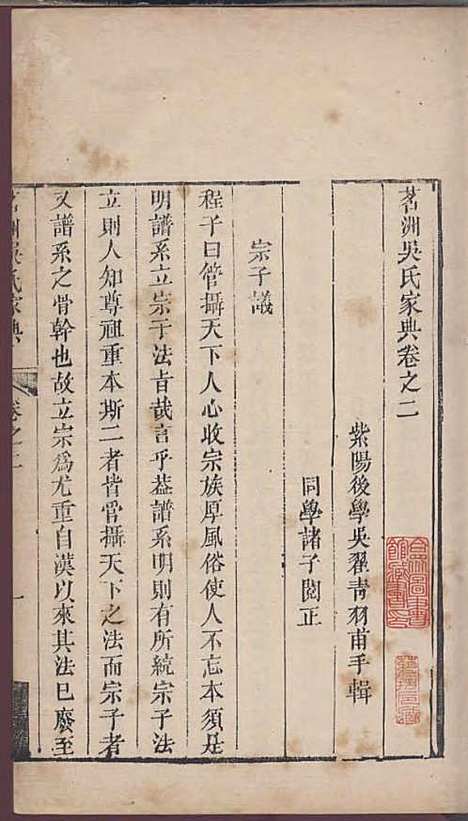 茗洲吳氏家典卷之二
紫陽後學吳翟青羽甫手輯
同學諸子閱正
宗子議
程子曰管攝天下人心收宗族厚風俗使人不忘本須是
明譜系立宗子法旨哉言乎葢譜系明則有所統宗子法
立則人知尊祖重本斯二者皆管攝天下之法而宗子者
又譜系之骨幹也故立宗爲尤重自漢以來其法巳廢至
茗洲吳氏家典
卷之二
一